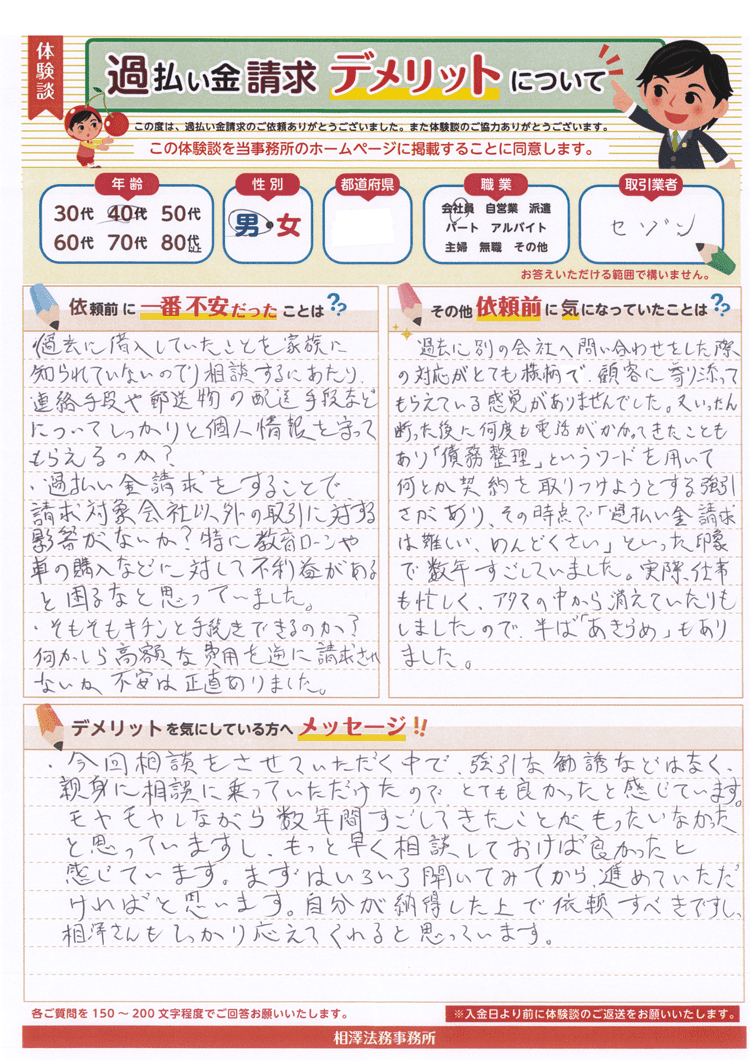 体験談
過払い金請求 デメリットについて
この度は、過払い金請求のご依頼ありがとうございました。また体験談のご協力ありがとうございます。
この体験談を当事務所のホームページに掲載することに同意します。
年齢
30代 40代 50代
60代 70代 80代以上
性別
男・女
都道府県
職業
会社員 自営業 派遣
パート アルバイト
主婦 無職 その他
取引業者
セゾン
お答えいただける範囲で構いません。
依頼前に一番不安だったことは??
過去に借入していたことを家族に
知られていないので相談するにあたり、
連絡手段や郵送物の配送手段など
についてしっかりと個人情報を守って
もらえるのか?
・過払い金請求をすることで
請求対象会社以外の取引に対する
影響がないか?特に教育ローンや
車の購入などに対して不利益がある
と困るなと思っていました。
・そもそもキチンと手続きできるのか?
何かしら高額な費用を逆に請求され
ないか、不安は正直ありました。
その他依頼前に気になっていたことは??
過去に別の会社へ問い合わせをした際
の対応がとても横柄で、顧客に寄り添って
もらえている感覚がありませんでした。又いったん
断った後に何度も電話がかかってきたことも
あり「債務整理」というワードを用いて
何とか契約を取りつけようとする強引
さがあり、その時点で「過払い金請求
は難しい、めんどくさい」といった印象
で数年すごしていました。実際、仕事
も忙しく、アタマの中から消えていたりも
しましたので、半ば「あきらめ」もあり
ました。
デメリットを気にしている方へメッセージ!!
・今回相談をさせていただく中で、強引な勧誘などはなく、
親身に相談に乗っていただけたので、とても良かったと感じています。
モヤモヤしながら数年間すごしてきたことがもったいなかった
と思っていますし、もっと早く相談しておけば良かったと
感じています。まずはいろいろ聞いてみてから、進めていただ
ければと思います。自分が納得した上で依頼すべきですし、
相澤さんもしっかり応えてくれると思っています。
各ご質問を150～200文字程度でご回答お願いいたします。
※入金日より前に体験談のご返送をお願いいたします。
相澤法務事務所